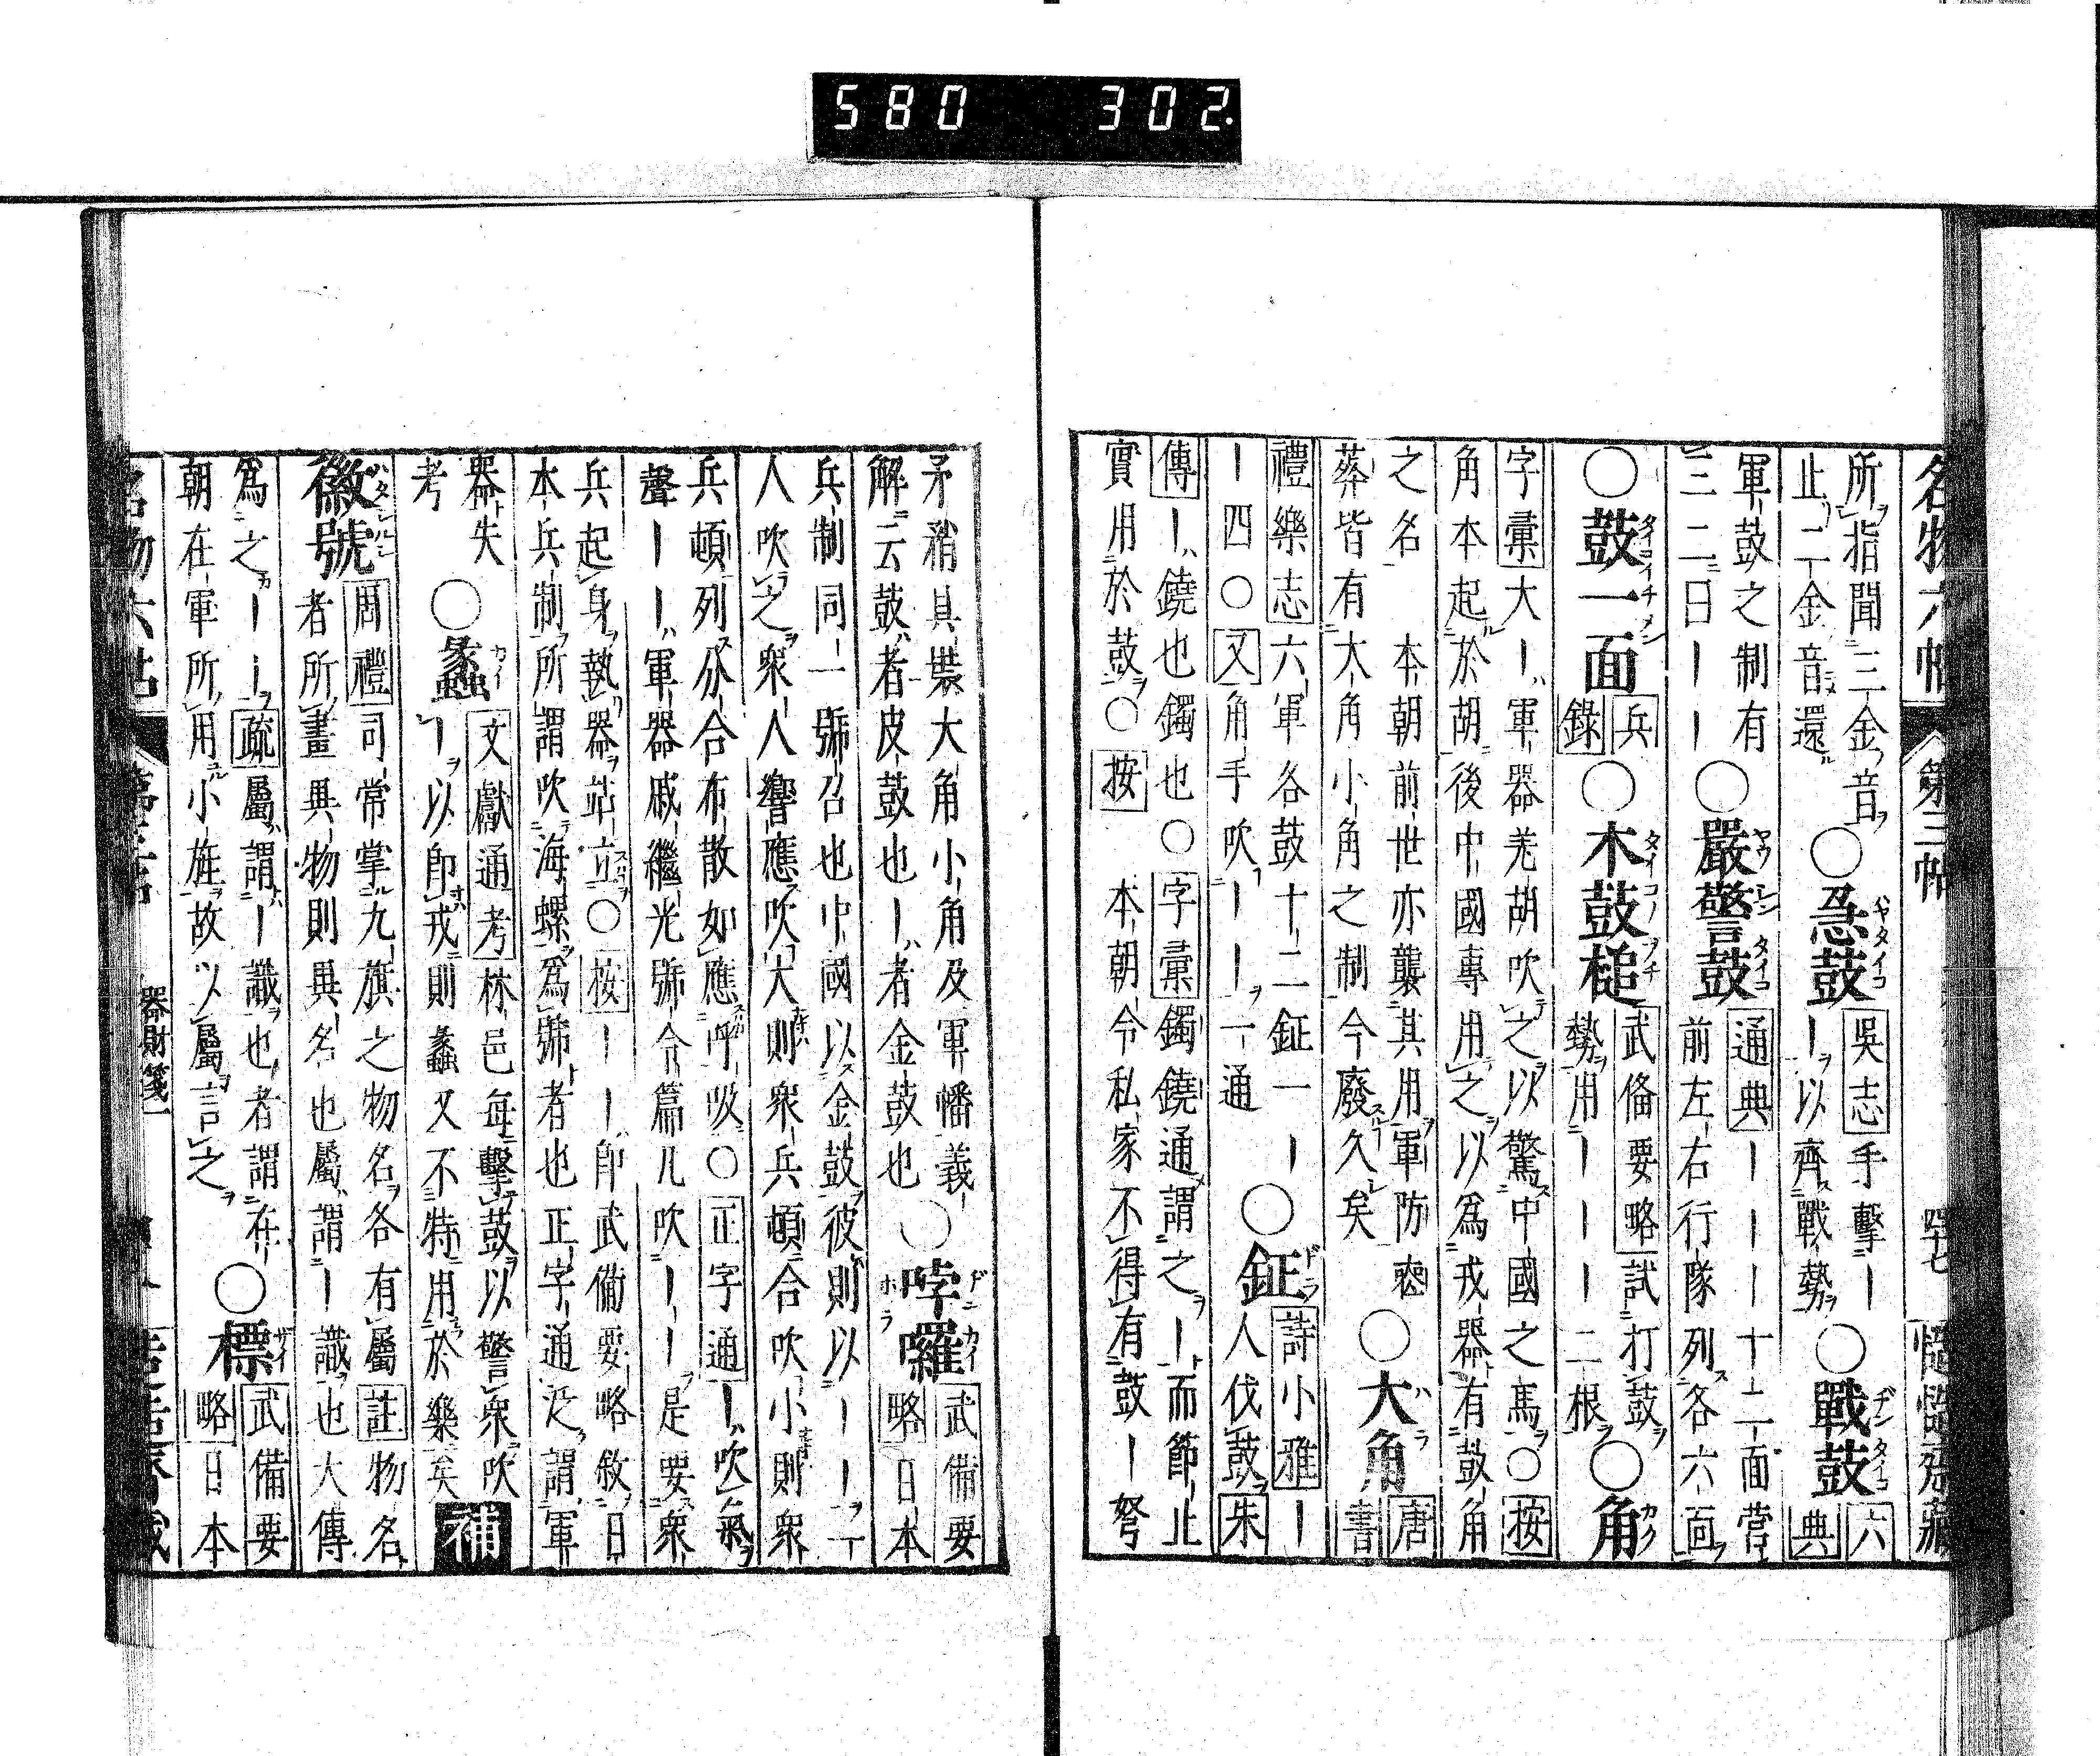 580 302.
名物六帖 第三帖 四十七
所指聞三金音
止二金音還
○急鼓 吳志手擊ー
ー以齊戰勢
○戰鼓 六
典
軍鼓之制有
三二曰ーー
○嚴警鼓 通典ーーー十二面營
前左右行隊列各六面
○鼓一面 兵
錄
○木鼓槌 武備要略試打鼓
勢用ーーー二根
○角
字彙大ー軍器羌胡吹之以驚中國之馬○按
角本起於胡後中國專用之以為戎器有鼓角
之名 本朝前世亦襲其用軍防
葬皆有大角小角之制今廢久矣
○大角 唐
書
禮樂志六軍各鼓十二鉦一ー
ー四○又角手吹ーー一通
○鉦 詩小雅ー
人伐鼓朱
傳ー鐃也鐲也○字彙鐲鐃通謂之ー而節止
實用於鼓○按 本朝令私家不得有鼓ー弩
矛矟具裝大角小角及軍幡義
解云鼓者皮鼓也ー者金鼓也
○哱囉 武備要
略日本
兵制同一號召也中國以金鼓彼則以ーー一
人吹之衆人響應吹大則衆兵頓合吹小則衆
兵頓列分合布散如應呼吸○正字通ー吹氣
聲ーー軍器戚繼光號令篇凡吹ーー是要衆
兵起身執器站立○按ーー即武備要略敘日
本兵制所謂吹海螺為號者也正字通泛謂軍
器失
考
○蠡 文獻通考林邑每擊鼓以警衆吹
ー以即戎則蠡又不特用於樂矣
補
徽號 周禮司常掌九旗之物名各有屬註物名
者所畫異物則異名也屬謂ー識也大傳
為之ーー疏屬謂ー識也者謂在
朝在軍所用小旌故以屬言之
○標 武備要
略日本
器財箋一